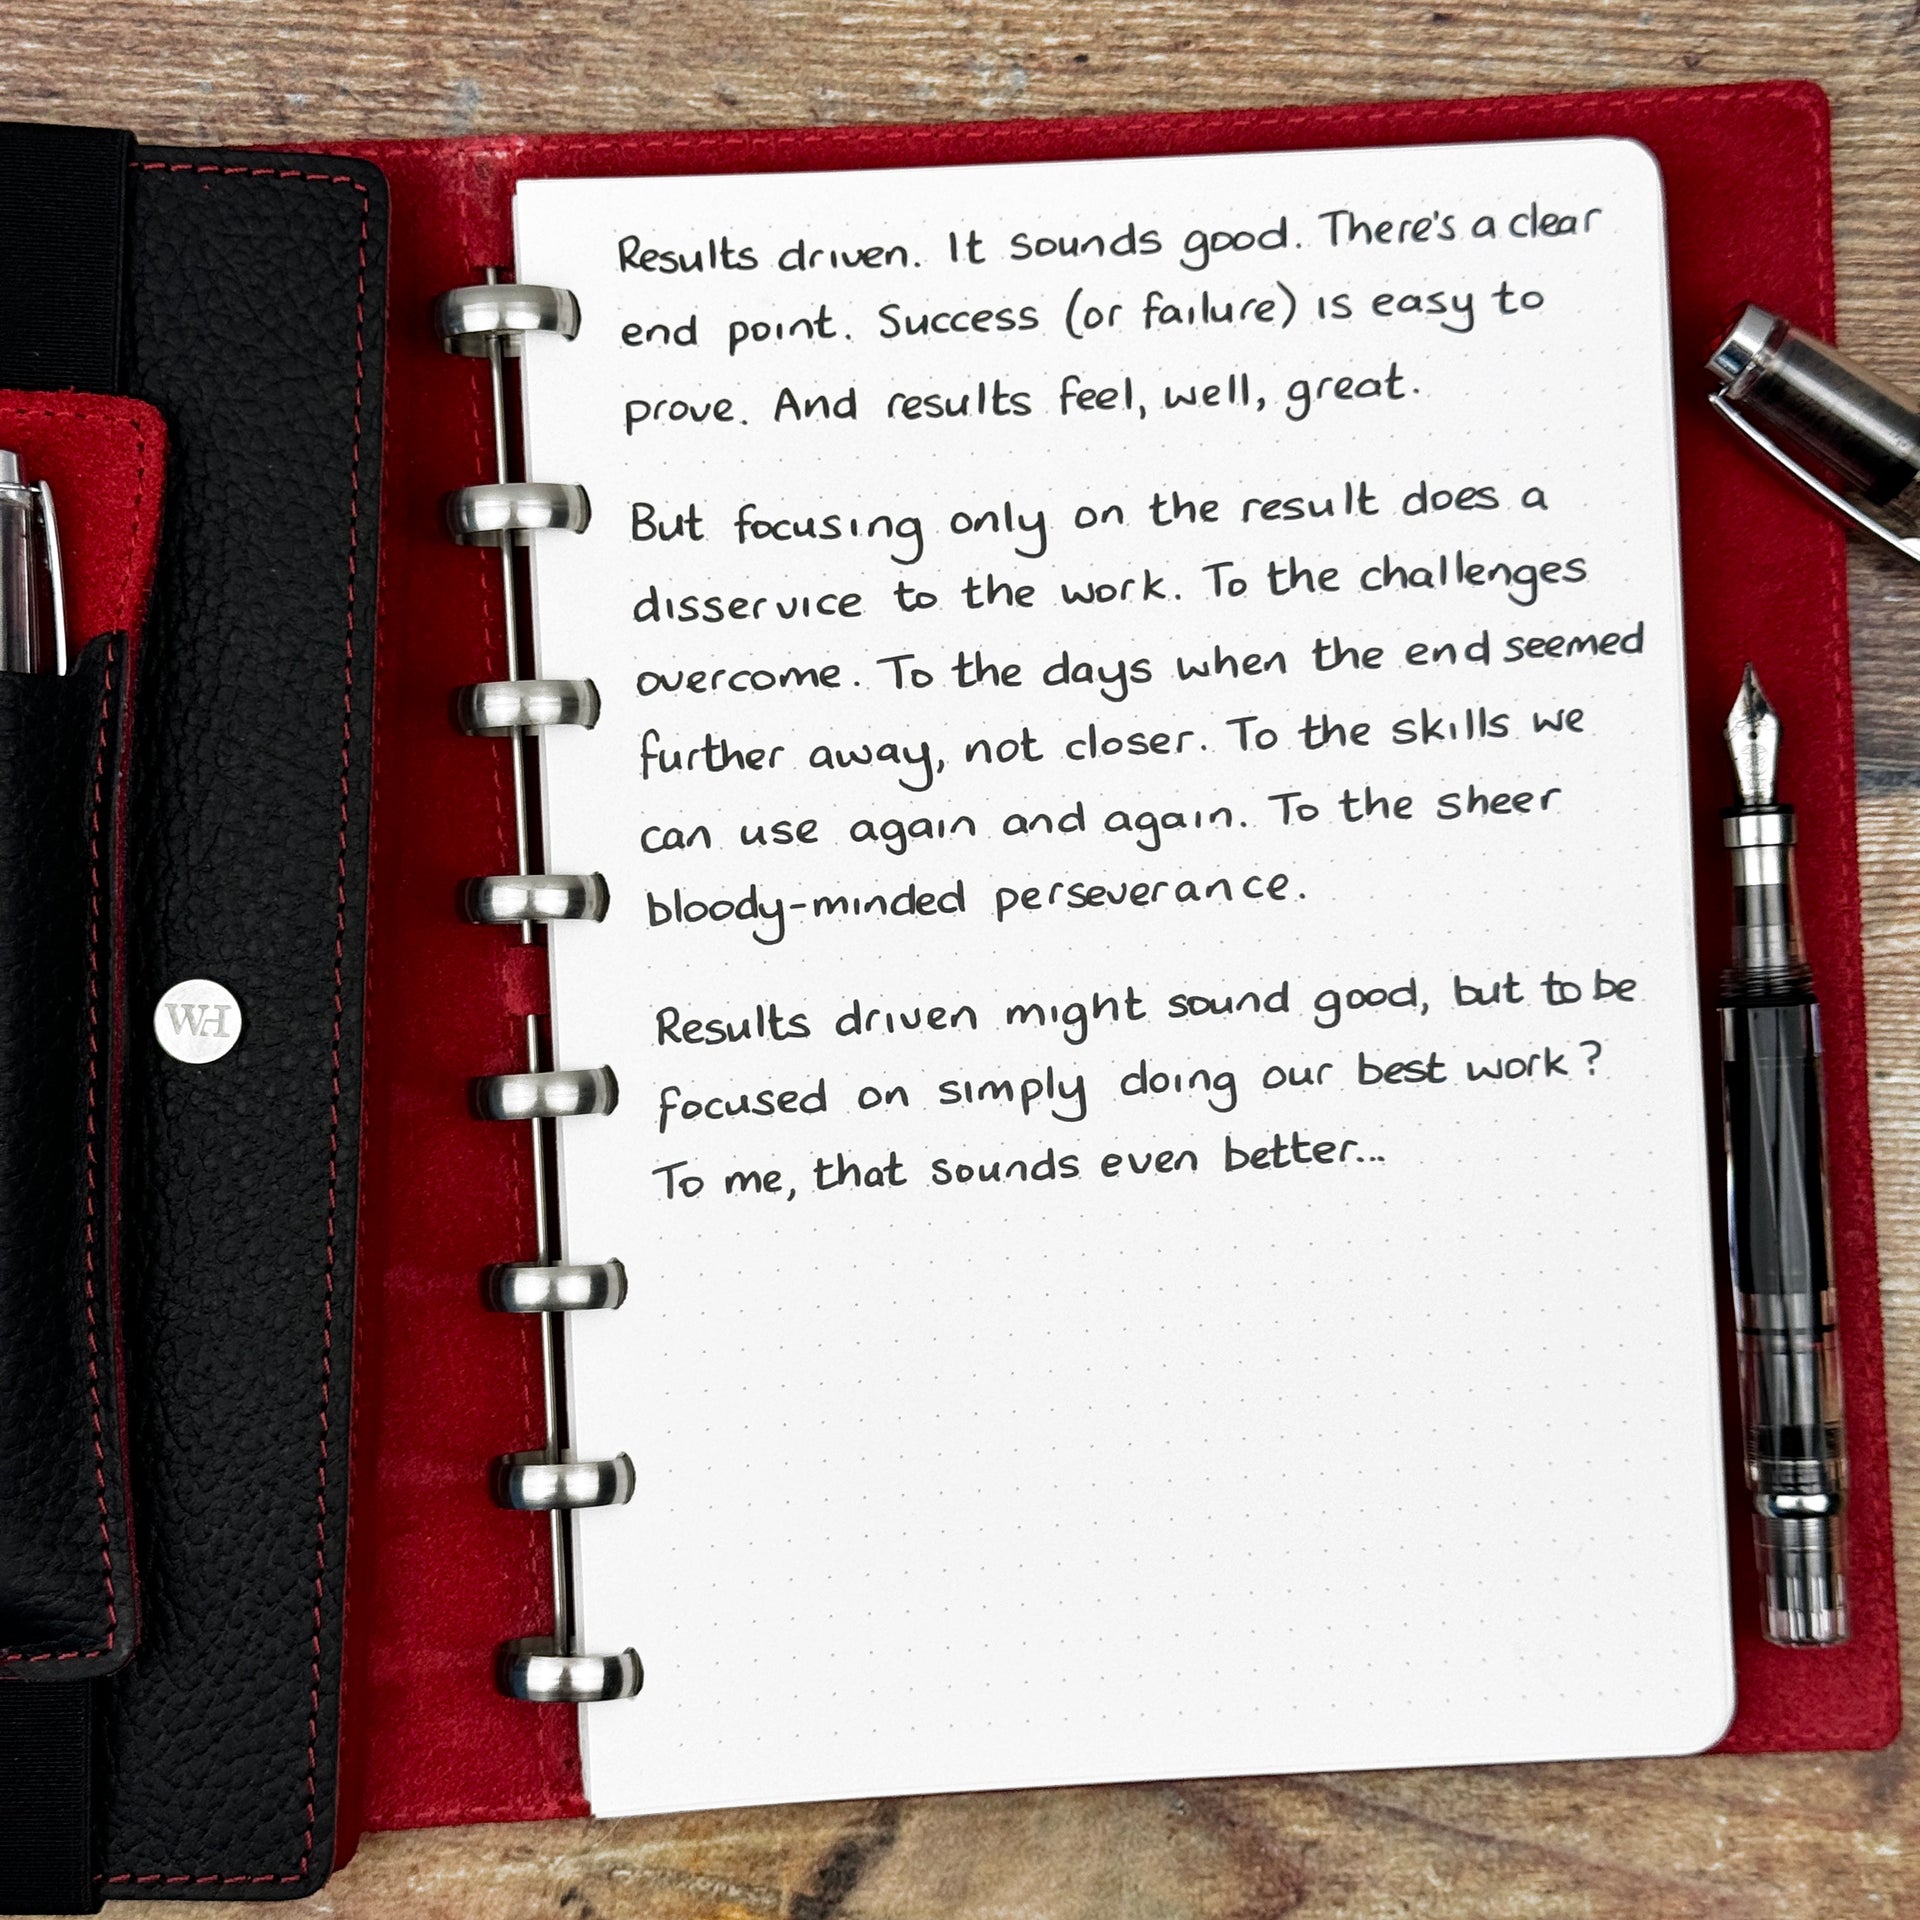 Results driven. It sounds good. There's a clear
end point. Success (or failure) is easy to
prove. And results feel, well, great.
But focusing only on the result does a
disservice to the work. To the challenges
overcome. To the days when the end seemed
further away, not closer. To the skills we
can use again and again. To the sheer
bloody-minded perseverance.
Results driven might sound good, but to be
focused on simply doing our best work?
To me, that sounds even better...
WH